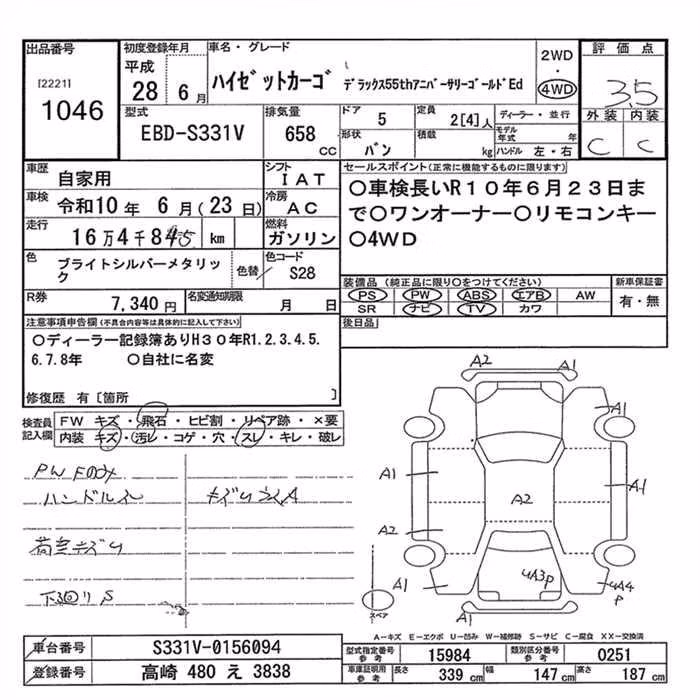 出品番号
[2221]
1046
初度登録年月
平成
28 6月
車名・グレード
ハイゼットカーゴ デラックス55thアニバーサリーゴールドEd
2WD
・
4WD
評価点
3.5
外装 内装
C C
型式
EBD-S331V
排気量
658 CC
ドア
5
定員
2[4]人
ディーラー・並行
形状
バン
積載
kg
モデル年式 年
ハンドル 左・右
車歴
自家用
シフト
IAT
車検
令和10年 6月(23日)
冷房
AC
走行
16万4千845 km
燃料
ガソリン
色
ブライトシルバーメタリック
色替
色コード
S28
R券
7,340円
名変通知期限
月 日
セールスポイント(正常に機能するものに限ります)
○車検長いR10年6月23日ま
で○ワンオーナー○リモコンキー
○4WD
装備品(純正品に限り○をつけてください)
PS PW ABS エアB AW
SR ナビ TV カワ
新車保証書
有・無
後日品
注意事項申告欄(不具合内容等は具体的に記入して下さい)
○ディーラー記録簿ありH30年R1.2.3.4.5.
6.7.8年 ○自社に名変
修復歴 有[箇所 ]
検査員記入欄
FW キズ・飛石・ヒビ割・リペア跡・×要
内装 キズ・汚レ・コゲ・穴・スレ・キレ・破レ
PW
ハンドルスレ
荷室キズ
下回りS
A2
A1
A1
A1
A1
A2
A2
A1
A1
U4A3P
U4A4
P
A1
スペア
A-キズ E-エクボ U-凹み W-補修跡 S-サビ C-腐食 XX-交換済
車台番号
S331V-0156094
登録番号
高崎 480 え 3838
型式指定番号
参考
15984
類別区分番号
参考
0251
車庫証明用
参考
長さ 339 cm 幅 147 cm 高さ 187 cm